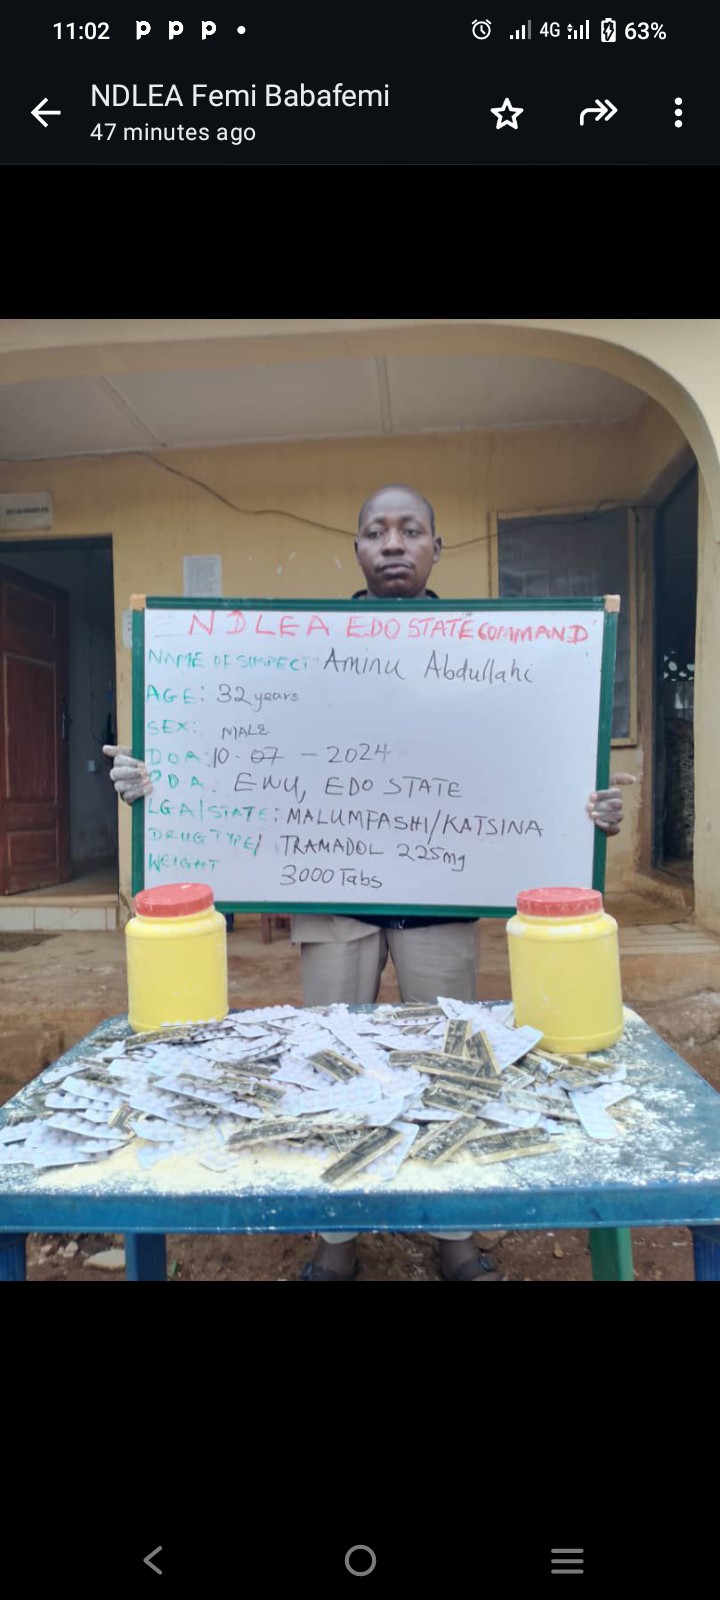 11:02 4G 63%
NDLEA Femi Babafemi
47 minutes ago
NDLEA EDO STATE COMMAND
NAME OF SUSPECT: Aminu Abdullahi
AGE: 32 years
SEX: MALE
DOA: 10-07-2024
PDA: EWU, EDO STATE
LGA/STATE: MALUMFASHI/KATSINA
DRUG TYPE/ TRAMADOL 225mg
WEIGHT 3000 Tabs